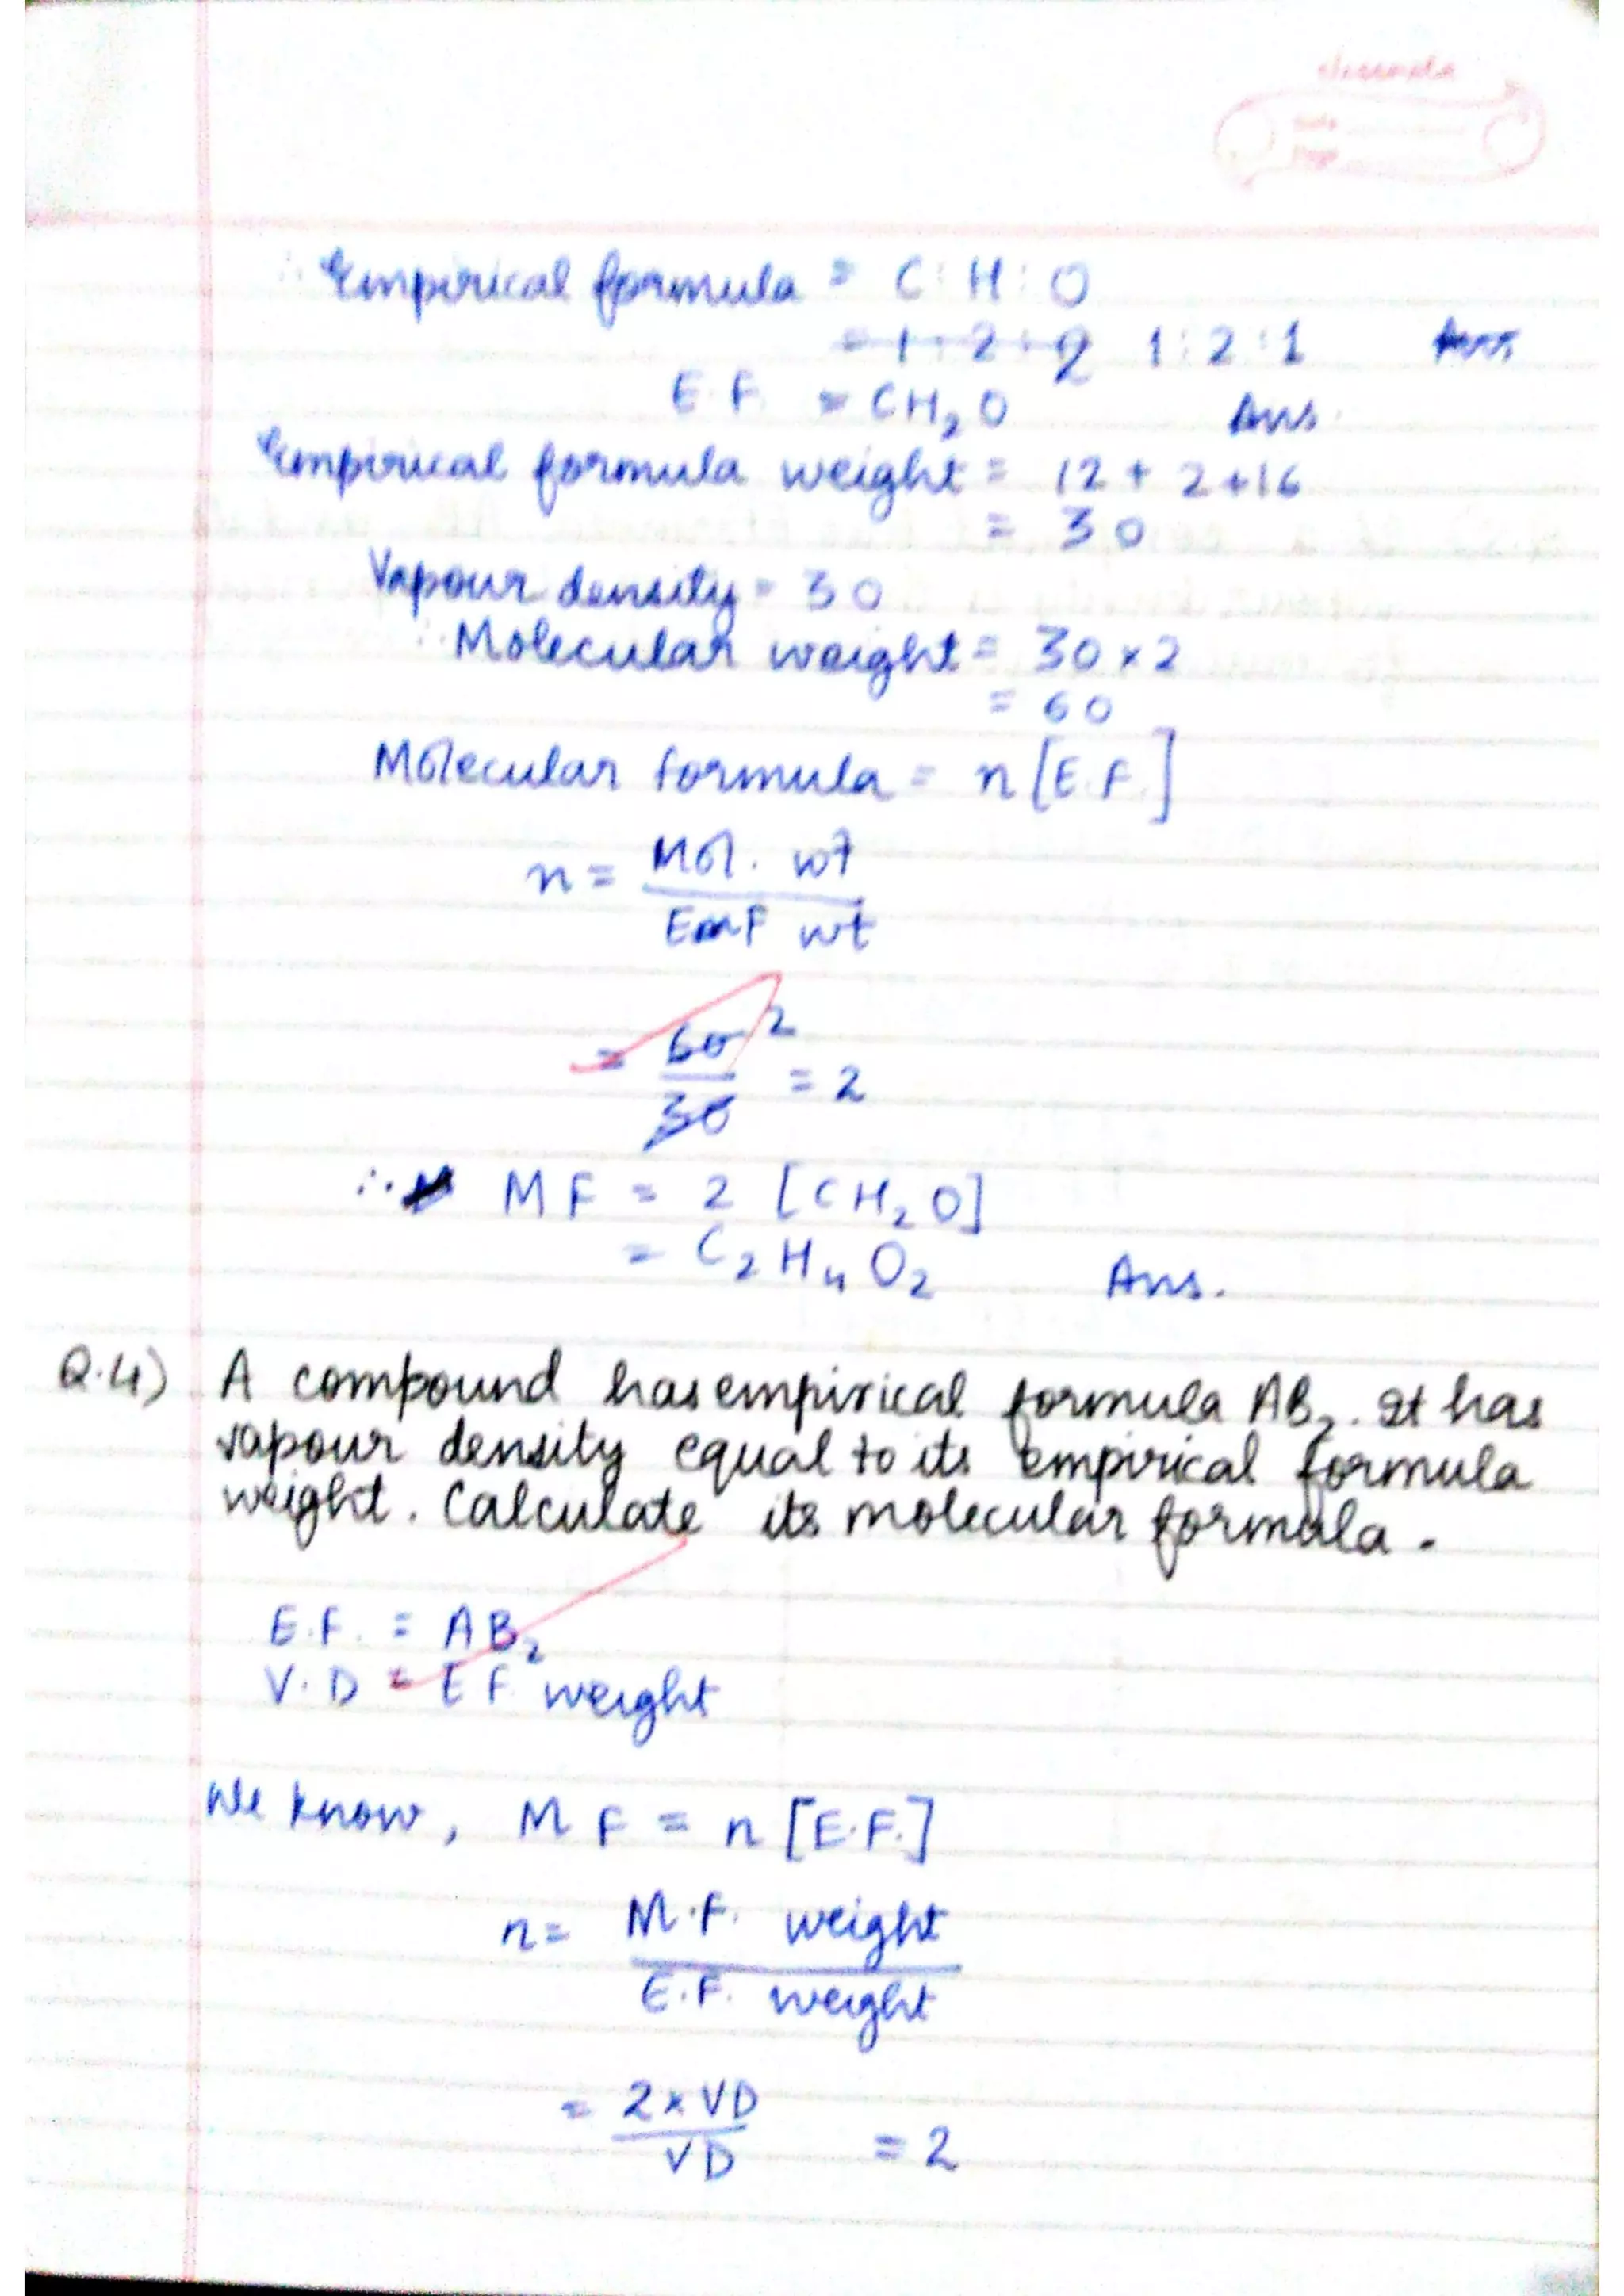 ∴ Empirical formula = C : H : O
= 1 : 2 : 2 1 : 2 : 1 Ans
E.F. = CH₂O Ans.
Empirical formula weight = 12 + 2 + 16
= 30
Vapour density = 30
∴ Molecular weight = 30 × 2
= 60
Molecular formula = n [E.F.]
n = Mol. wt
EmF wt
= 60 2
30 = 2
∴ MF = 2 [CH₂O]
= C₂H₄O₂ Ans.
Q.4) A compound has empirical formula AB₂. It has
vapour density equal to its empirical formula
weight. Calculate its molecular formula.
E.F. = AB₂
V.D = EF weight
We know, MF = n [E.F.]
n = M.F. weight
E.F. weight
= 2 × VD
VD = 2